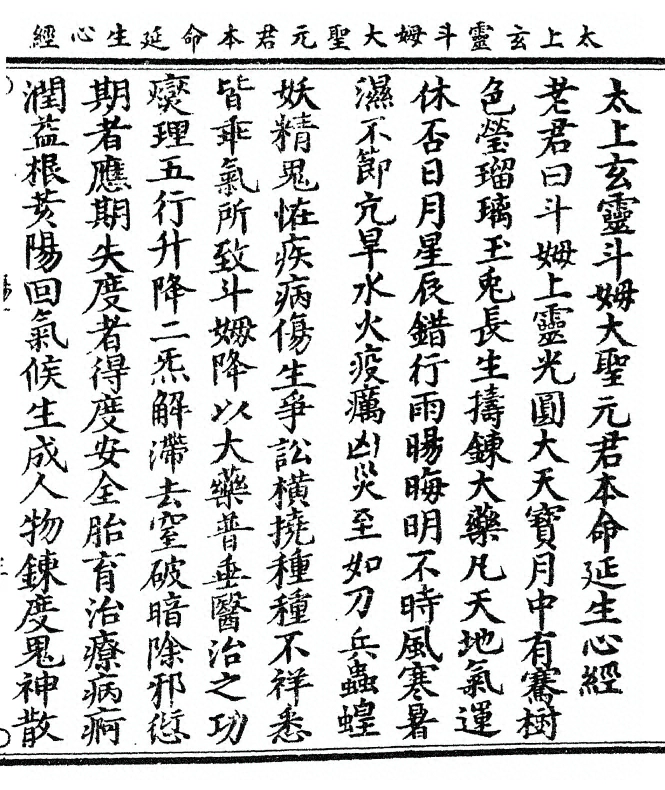 太上玄靈斗姆大聖元君本命延生心經
太上玄靈斗姆大聖元君本命延生心經
老君曰斗姆上靈光圓大天寶月中有騫樹
色瑩瑠璃玉兎長生擣鍊大藥凡天地氣運
休否日月星辰錯行雨暘晦明不時風寒暑
濕不節亢旱水火疫癘凶災至如刀兵蟲蝗
妖精鬼怪疾病傷生爭訟橫撓種種不祥悉
皆乖氣所致斗姆降以大藥普垂醫治之功
燮理五行升降二炁解滯去窒破暗除邪愆
期者應期失度者得度安全胎育治療病痾
潤益根荄陽回氣候生成人物鍊度鬼神散